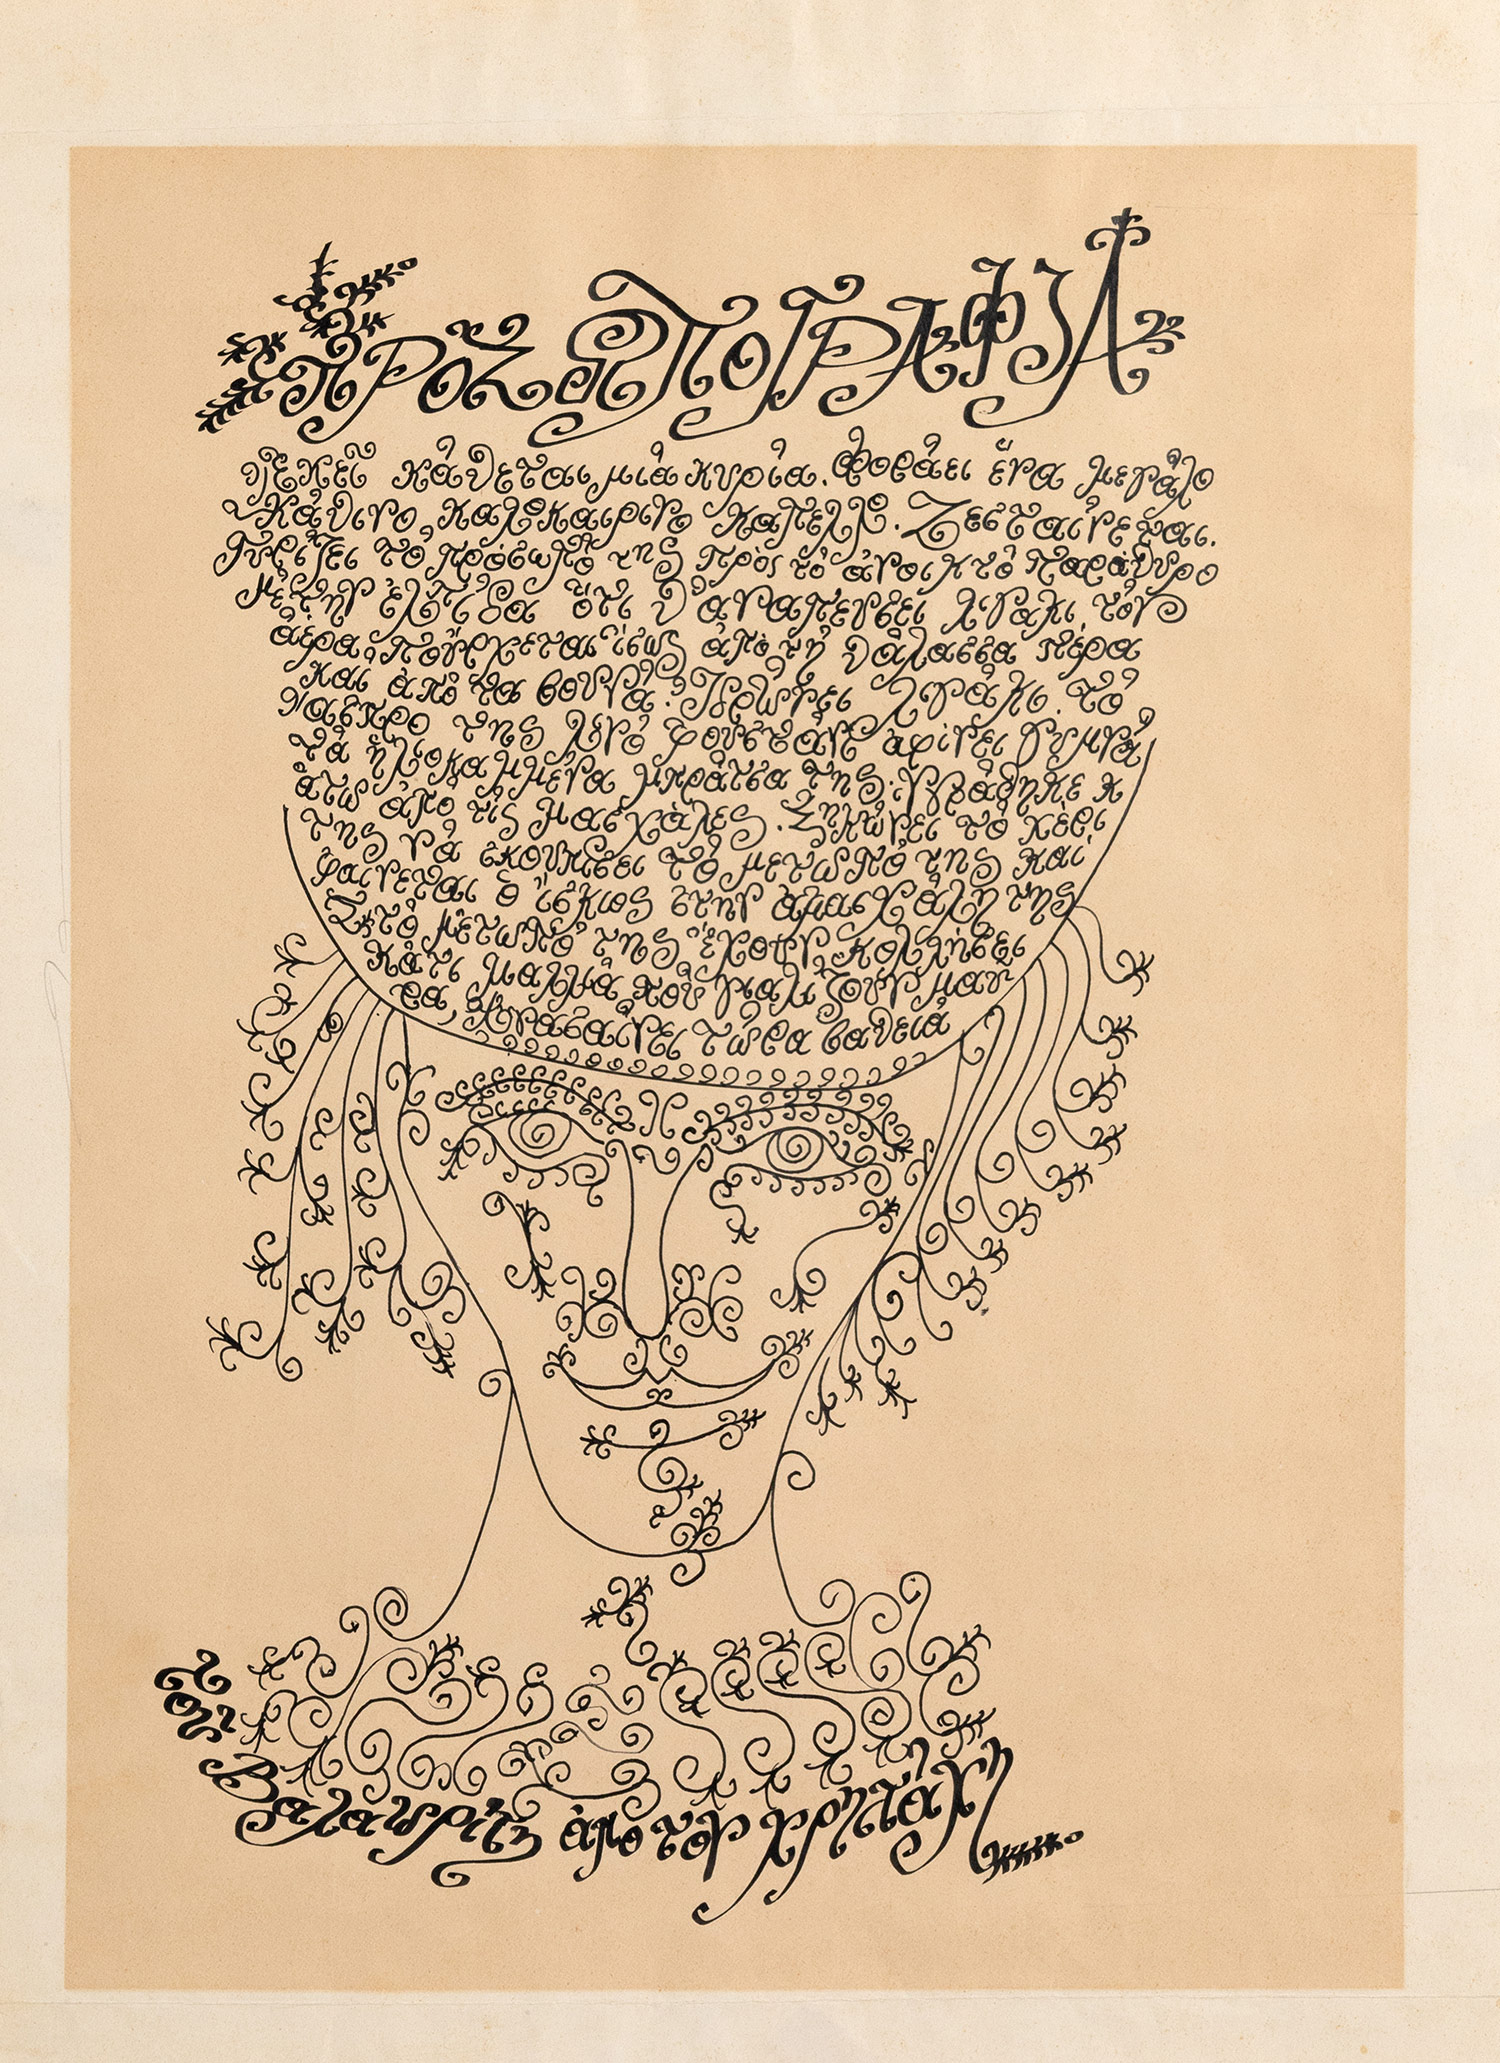 ΠΡΟΣΩΠΟΓΡΑΦΙΑ
Ἐκεῖ κάθεται μιὰ κυρία. Φοράει ἕνα μεγάλο
κάθινο καλοκαιρινὸ καπέλλο. Ζεσταίνεται.
Γυρίζει τὸ πρόσωπό της πρὸς τὸ ἀνοικτὸ παράθυρο
μὲ τὴν ἐλπίδα ὅτι θ' ἀναπνεύσει λιγάκι τὸν
ἀέρα ποὔρχεται ἴσως ἀπὸ τὴ θάλασσα πέρα
καὶ ἀπὸ τὰ βουνά. Ἱδρώνει λιγάκι. Τὸ
ἄσπρο της λινὸ φουστάνι ἀφίνει γυμνὰ
τὰ ἡλιοκαμμένα μπράτσα της. Ὑγράθηκε κ
άτω ἀπὸ τὶς μασχάλες. Σηκώνει τὸ χέρι
της νὰ σκουπίσει τὸ μέτωπό της καὶ
φαίνεται ὁ ἴσκιος στὴν ἀμασχάλη της
Στὸ μέτωπό της ἔχουν κολλήσει
κάτι μαλλιὰ ποὺ γιαλίζουν μαῦ
ρα, Ἀνασαίνει τώρα βαθειὰ
τοῦ
Βαλαωρίτη ἀπὸ τὸν χρηστάκη